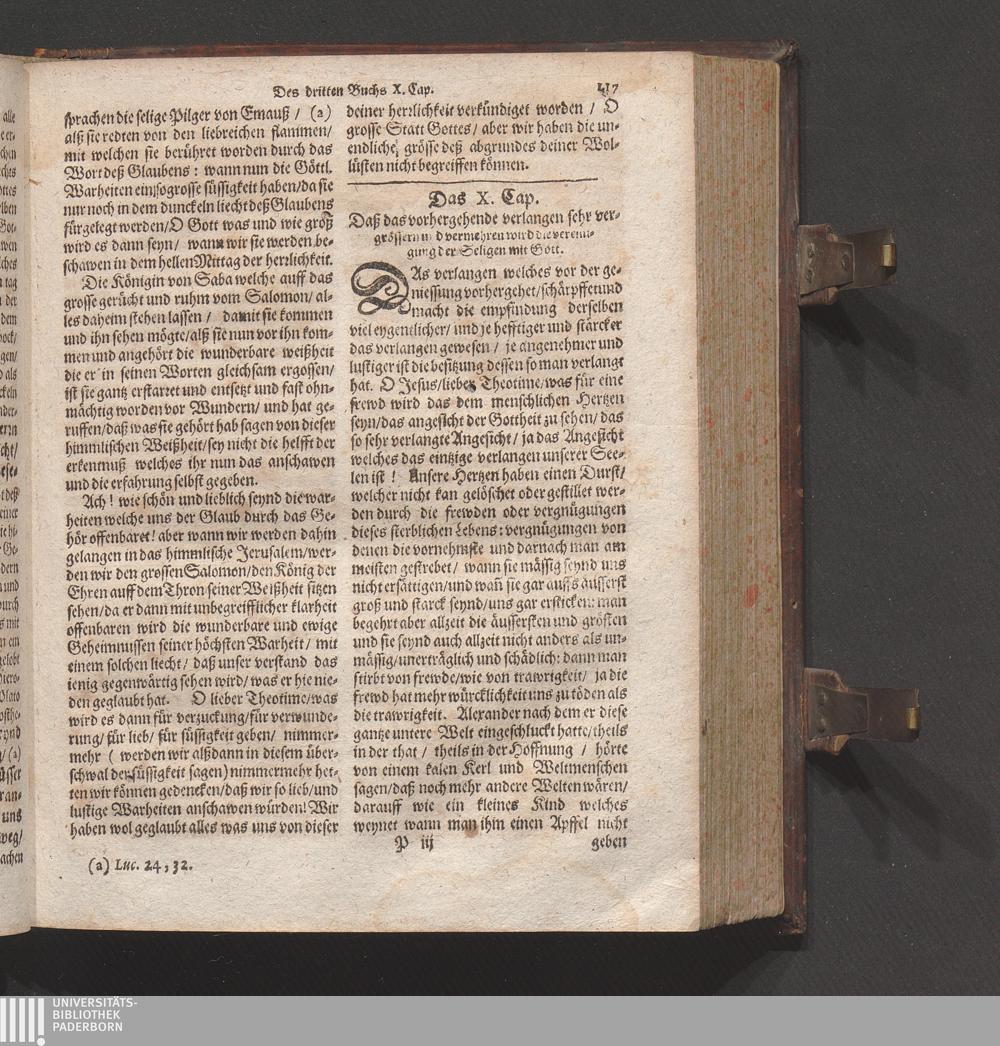 Des dritten Buchs X. Cap.
117
sprachen die selige Pilger von Emauß / (a)
alß sie redten von den liebreichen flammen/
mit welchen sie berühret worden durch das
Wort deß Glaubens : wann nun die Göttl.
Warheiten ein so grosse süssigkeit haben/da sie
nur noch in dem dunckeln liecht deß Glaubens
fürgelegt werden/O Gott was und wie groß
wird es dann seyn/ wann wir sie werden be-
schawen in dem hellen Mittag der herzlichkeit.
Die Königin von Saba welche auff das
grosse gerücht und ruhm vom Salomon/ al-
les daheim stehen lassen / damit sie kommen
und ihn sehen mögte/alß sie nun vor ihn kom-
men und angehört die wunderbare weißheit
die er in seinen Worten gleichsam ergossen/
ist sie gantz erstarret und entsetzt und fast ohn-
mächtig worden vor Wundern/ und hat ge-
ruffen/daß was sie gehört hab sagen von dieser
himmlischen Weißheit/sey nicht die helfft der
erkentnuß welches ihr nun das anschawen
und die erfahrung selbst gegeben.
Ach! wie schön und lieblich seynd die war-
heiten welche uns der Glaub durch das Ge-
hör offenbaret! aber wann wir werden dahin
gelangen in das himmlische Jerusalem/wer-
den wir den grossen Salomon/den König der
Ehren auff dem Thron seiner Weißheit sitzen
sehen/da er dann mit unbegreifflicher klarheit
offenbaren wird die wunderbare und ewige
Geheimnussen seiner höchsten Warheit/ mit
einem solchen liecht/ daß unser verstand das
ienig gegenwärtig sehen wird/ was er hie nie-
den geglaubt hat. O lieber Theotime/was
wird es dann für verzuckung/für verwunde-
rung/ für lieb/ für süssigkeit geben/ nimmer-
mehr ( werden wir alßdann in diesem über-
schwal der süssigkeit sagen) nimmermehr het-
ten wir können gedencken/daß wir so lieb/und
lustige Warheiten anschawen würden! Wir
haben wol geglaubt alles was uns von dieser
(a) Luc. 24, 32.
deiner herzlichkeit verkündiget worden / O
grosse Statt Gottes/ aber wir haben die un-
endliche grösse deß abgrundes deiner Wol-
lüsten nicht begreiffen können.
Das X. Cap.
Daß das vorhergehende verlangen sehr ver-
grössern und vermehren wird die vereini-
gung der Seligen mit Gott.
DAs verlangen welches vor der ge-
niessung vorhergehet/schärpffet und
macht die empfindung derselben
viel eygentlicher/ und je hefftiger und stärcker
das verlangen gewesen / je angenehmer und
lustiger ist die besitzung dessen so man verlangt
hat. O Jesus/lieber Theotime/was für eine
frewd wird das dem menschlichen Hertzen
seyn/das angesicht der Gottheit zu sehen/das
so sehr verlangte Angesicht/ ja das Angesicht
welches das eintzige verlangen unserer See-
len ist ! Unsere Hertzen haben einen Durst/
welcher nicht kan gelöschet oder gestillet wer-
den durch die frewden oder vergnügungen
dieses sterblichen Lebens: vergnügungen von
denen die vornehmste und darnach man am
meisten gestrebet/ wann sie mässig seynd uns
nicht ersättigen/und wañ sie gar auffs äusserst
groß und starck seynd/uns gar ersticken: man
begehrt aber allzeit die äussersten und grösten
und sie seynd auch allzeit nicht anders als un-
mässig/unerträglich und schädlich: dann man
stirbt von frewde/wie von trawrigkeit/ ja die
frewd hat mehr würcklichkeit uns zu töden als
die trawrigkeit. Alexander nach dem er diese
gantze untere Welt eingeschluckt hatte/theils
in der that / theils in der Hoffnung / hörte
von einem kalen Kerl und Weltmenschen
sagen/daß noch mehr andere Welten wären/
darauff wie ein kleines Kind welches
weynet wann man ihm einen Apffel nicht
P iij
geben
UNIVERSITÄTS-
BIBLIOTHEK
PADERBORN